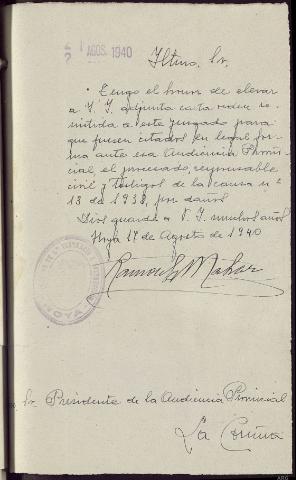 AGOS. 1940
Iltmo. Sr.
Tengo el honor de elevar
a V. I. adjunta carta orden re-
mitida a este juzgado para
que fuesen citados en legal for-
ma ante esa Audiencia Provin-
cial, el procesado, responsable
civil y testigos de la causa nº
18 de 1938, por daños
Dios guarde a V. I. muchos años
Noya 17 de Agosto de 1940
Sr. Presidente de la Audiencia Provincial
La Coruña